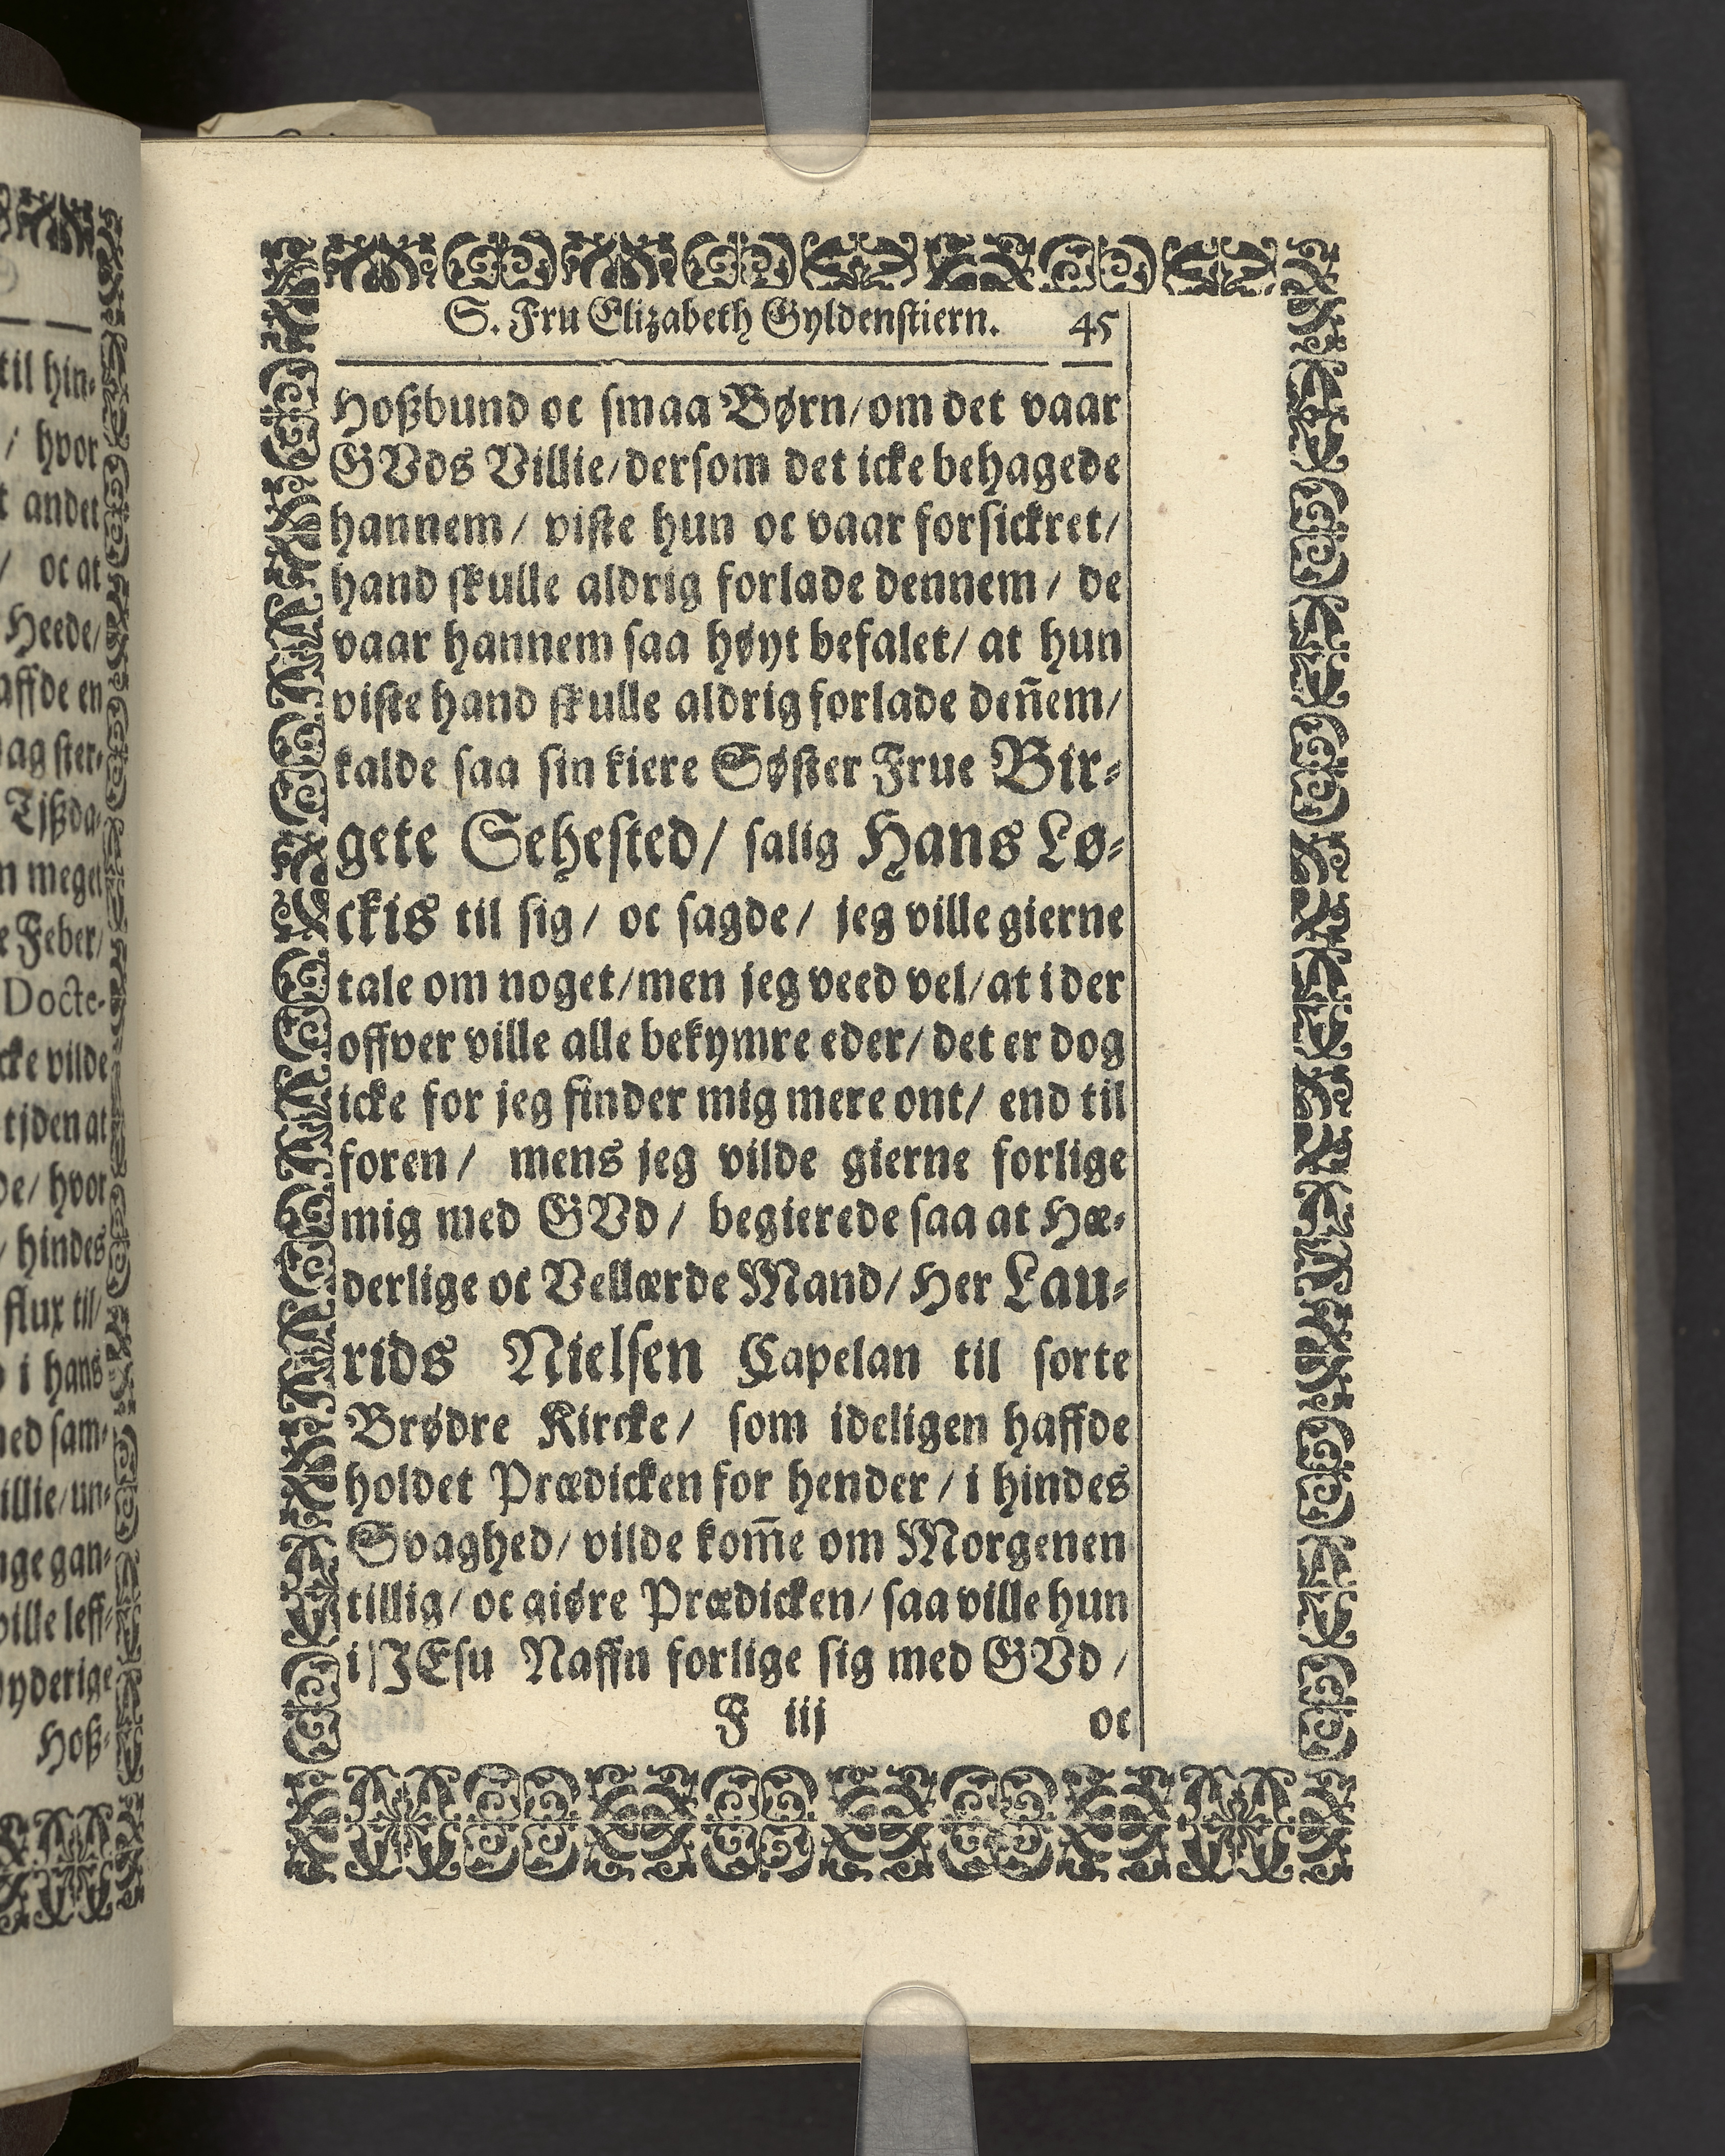 til hin-
/ hvor
t andet
/ oc at
Heede/
affde en
ag ster-
Tjßda-
n meget
e Feber/
Docte-
cke vilde
tjden at
de/ hvor
/ hindes
flux til/
i hans
ned sam-
illie/ un-
nge gan-
ville leff-
nyderige
Hoß-
S. Fru Elizabeth Gyldenstiern. 45
Hoßbund oc smaa Børn/ om det vaar
GVds Villie/ dersom det icke behagede
hannem/ viste hun oc vaar forsickret/
hand skulle aldrig forlade dennem/ de
vaar hannem saa høyt befalet/ at hun
viste hand skulle aldrig forlade den̄em/
kalde saa sin kiere Søster Frue Bir-
gete Sehested/ salig Hans Lø-
ckis til sig/ oc sagde/ jeg ville gierne
tale om noget/ men jeg veed vel/ at i der
offver ville alle bekymre eder/ det er dog
icke for jeg finder mig mere ont/ end til
foren/ mens jeg vilde gierne forlige
mig med GVd/ begierede saa at Hæ-
derlige oc Vellærde Mand/ Her Lau-
rids Nielsen Capelan til sorte
Brødre Kircke/ som ideligen haffde
holdet Prædicken for hender/ i hindes
Svaghed/ vilde kom̄e om Morgenen
tillig/ oc giøre Prædicken/ saa ville hun
i JEsu Naffn forlige sig med GVd/
F iij oc